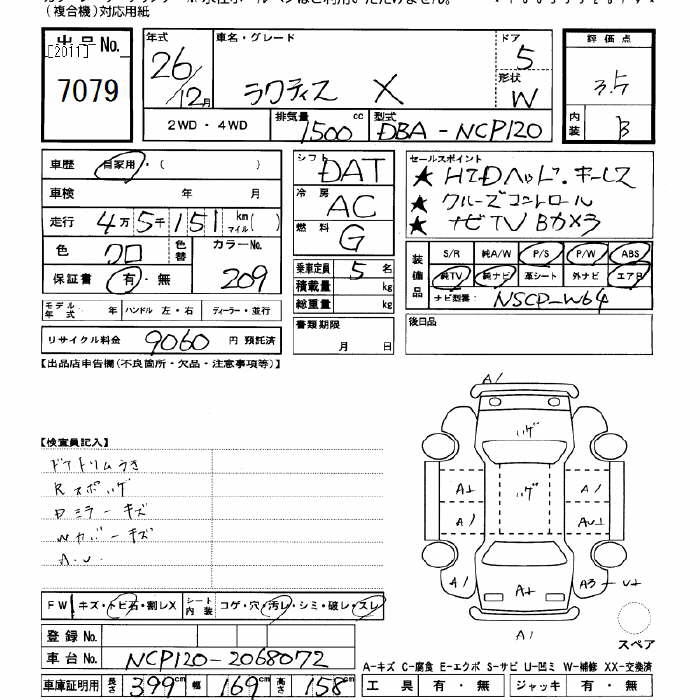 (複合機)対応用紙
出品No. 年式 車名・グレード ドア 評価点
[2011] 26/12月 ラクティス X 5 3.5
7079 形状 W
2WD・4WD 排気量 1500 cc 型式 DBA-NCP120 内装 B
車歴 自家用・( ) シフト DAT セールスポイント
車検 年 月 冷房 AC ★HIDヘッド.キーレス
走行 4万5千151km マイル( ) ★クルーズコントロール
色 クロ 色替 カラーNo. 209 燃料 G ★ナビTV Bカメラ
保証書 有・無 乗車定員 5名 装備品 S/R 純A/W P/S P/W ABS
積載量 kg 純TV 純ナビ 革シート 外ナビ エアB
モデル年式 年 ハンドル 左・右 ディーラー・並行 総重量 kg ナビ型番 NSCP-W64
リサイクル料金 9060 円 預託済 書類期限 月 日 後日品
【出品店申告欄(不良箇所・欠品・注意事項等)】
A1
【検査員記入】
ドアトリムうき
Rスポイゲ
Dミラーキズ
Wカバーキズ
A.U.
イゲ
A1 イゲ A1
A1 AU1
A1 A1 A3
A1
FW キズ・トビ石・割レX シート内装 コゲ・穴・汚レ・シミ・破レ・スレ
登録No. スペア
車台No. NCP120-2068072 A-キズ C-腐食 E-エクボ S-サビ U-凹ミ W-補修 XX-交換済
車庫証明用 長さ 399 幅 169 cm 高さ 158 cm 工具 有・無 ジャッキ 有・無